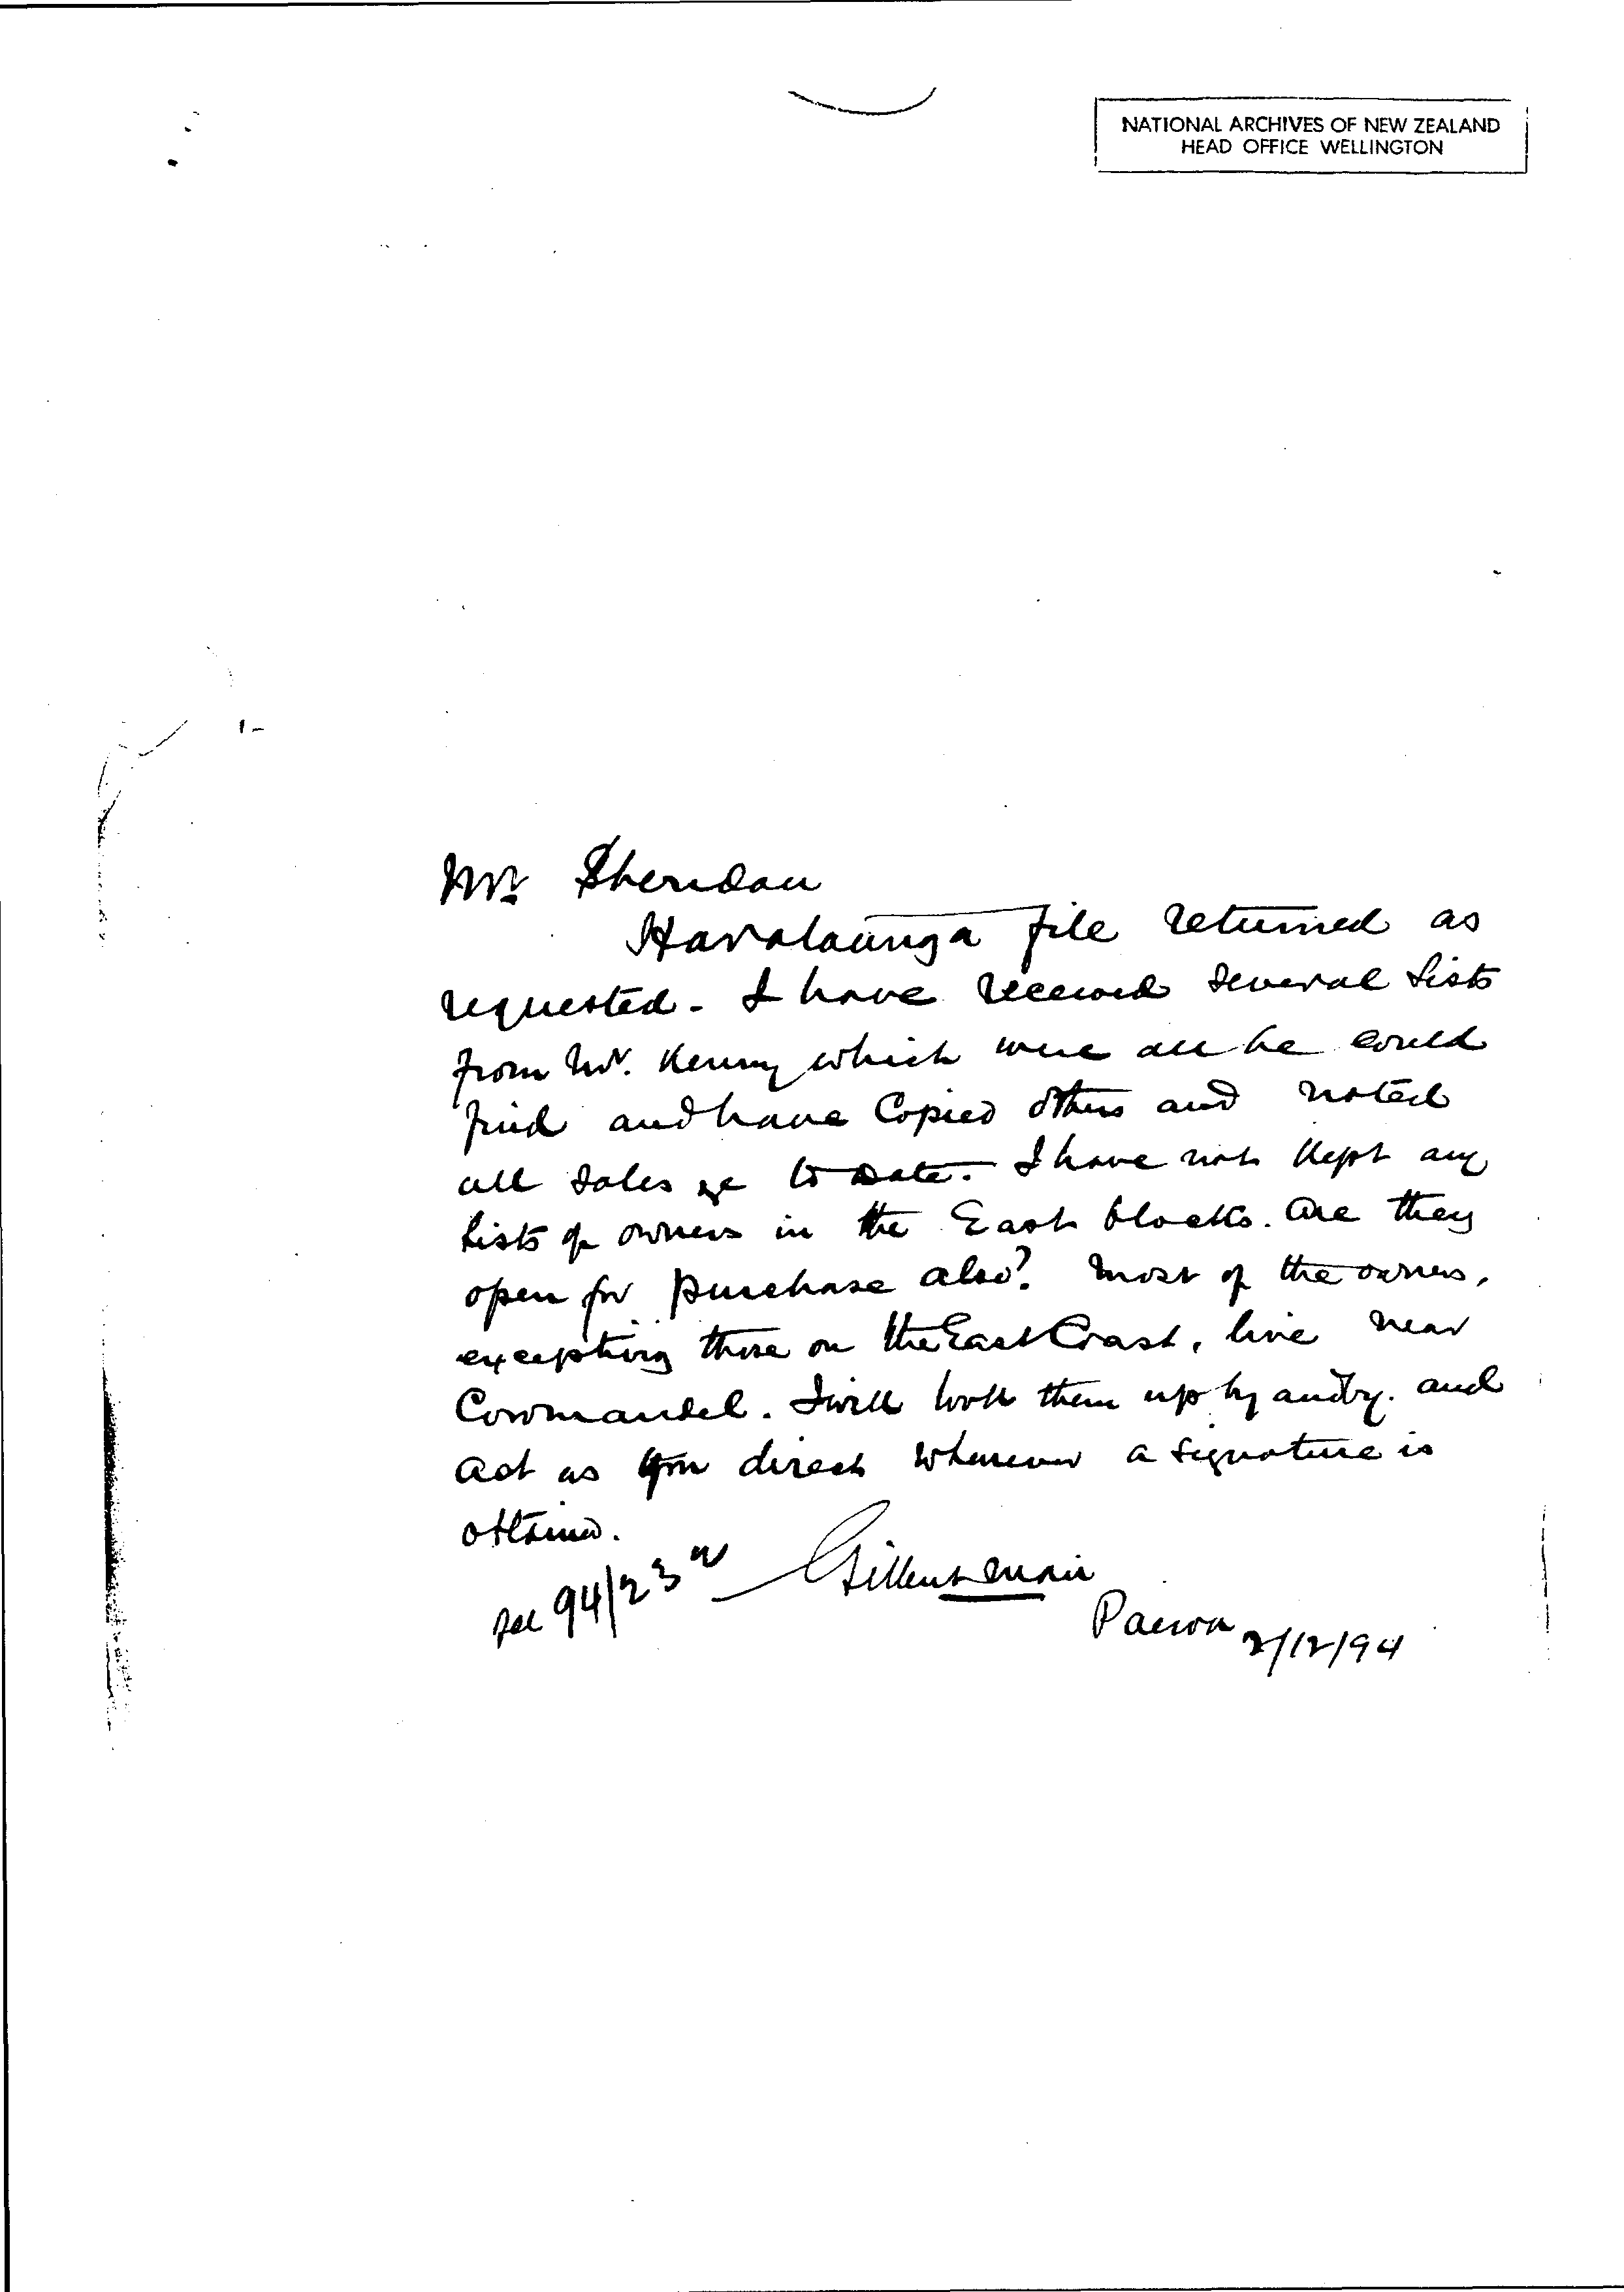 NATIONAL ARCHIVES OF NEW ZEALAND
HEAD OFFICE WELLINGTON
Mr. Sheridan
Harataunga file returned as
requested. I have received several lists
from Mr. Kenny which were all he could
find and have Copied others and noted
all sales &c to date. I have not kept any
lists of owners in the East blocks. Are they
open for purchase also? Most of the owners,
excepting those on the East Coast, live near
Coromandel. I will look them up by and by. and
act as you direct whenever a signature is
obtained.
94/23 Gilbert Mair
Paeroa 2/12/94